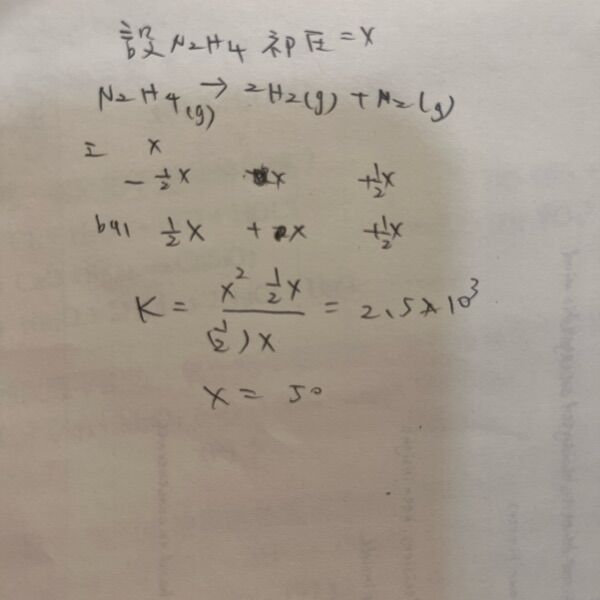 設 N2H4 初压=x
N2H4(g) → 2H2(g) + N2(g)
I x
-½x +x +½x
bal ½x +x +½x
K = x² ½x / (½)x = 2.5×10³
x = 50